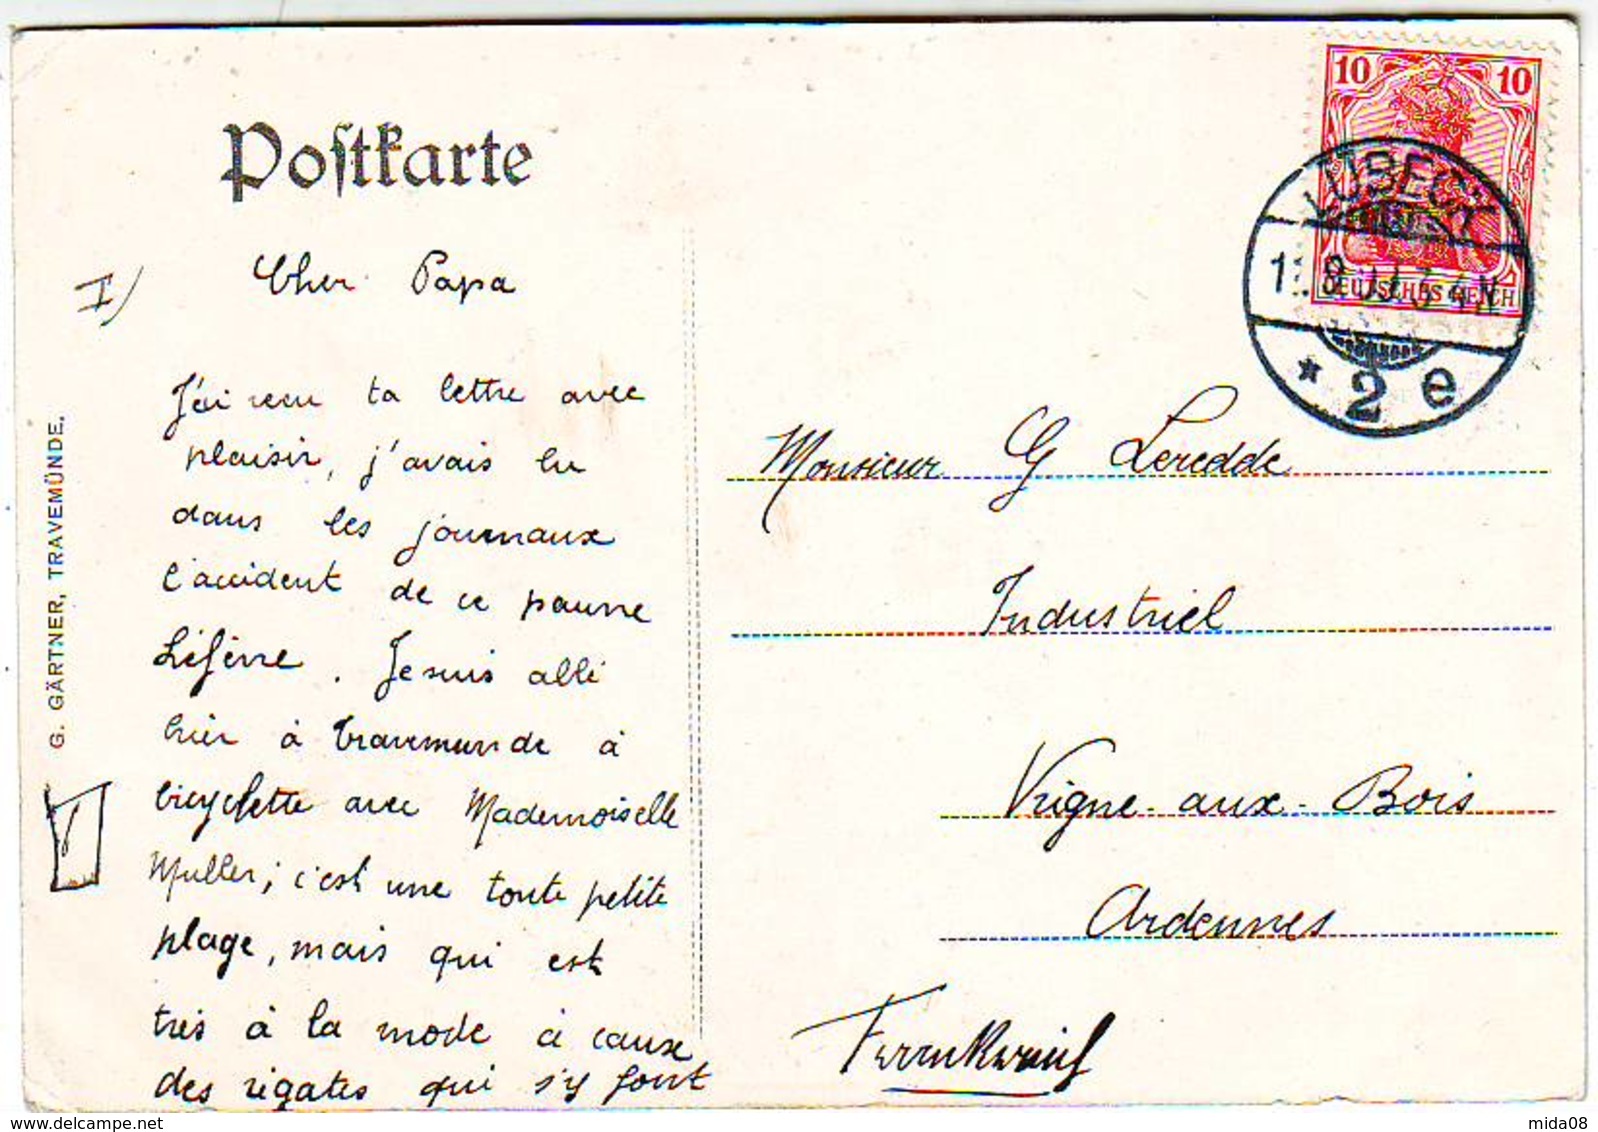 Postkarte
I)
Cher Papa
J'ai recu ta lettre avec
plaisir, j'avais lu
dans les journaux
l'accident de ce pauvre
Lefèvre. Je suis allé
hier à Travemunde à
bicyclette avec Mademoiselle
Muller; c'est une toute petite
plage, mais qui est
très à la mode à cause
des régates qui s'y font
G. GÄRTNER, TRAVEMÜNDE.
10 10
DEUTSCHES REICH
LÜBECK
* 2 e
Monsieur G Leredde
Industriel
Vrigne-aux-Bois
Ardennes
Frankreich
mida08